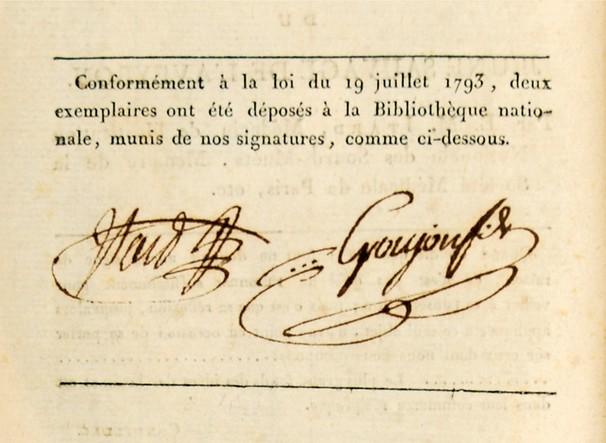 Conformément à la loi du 19 juillet 1793, deux
exemplaires ont été déposés à la Bibliothèque natio-
nale, munis de nos signatures, comme ci-dessous.
Itard Goujon fils